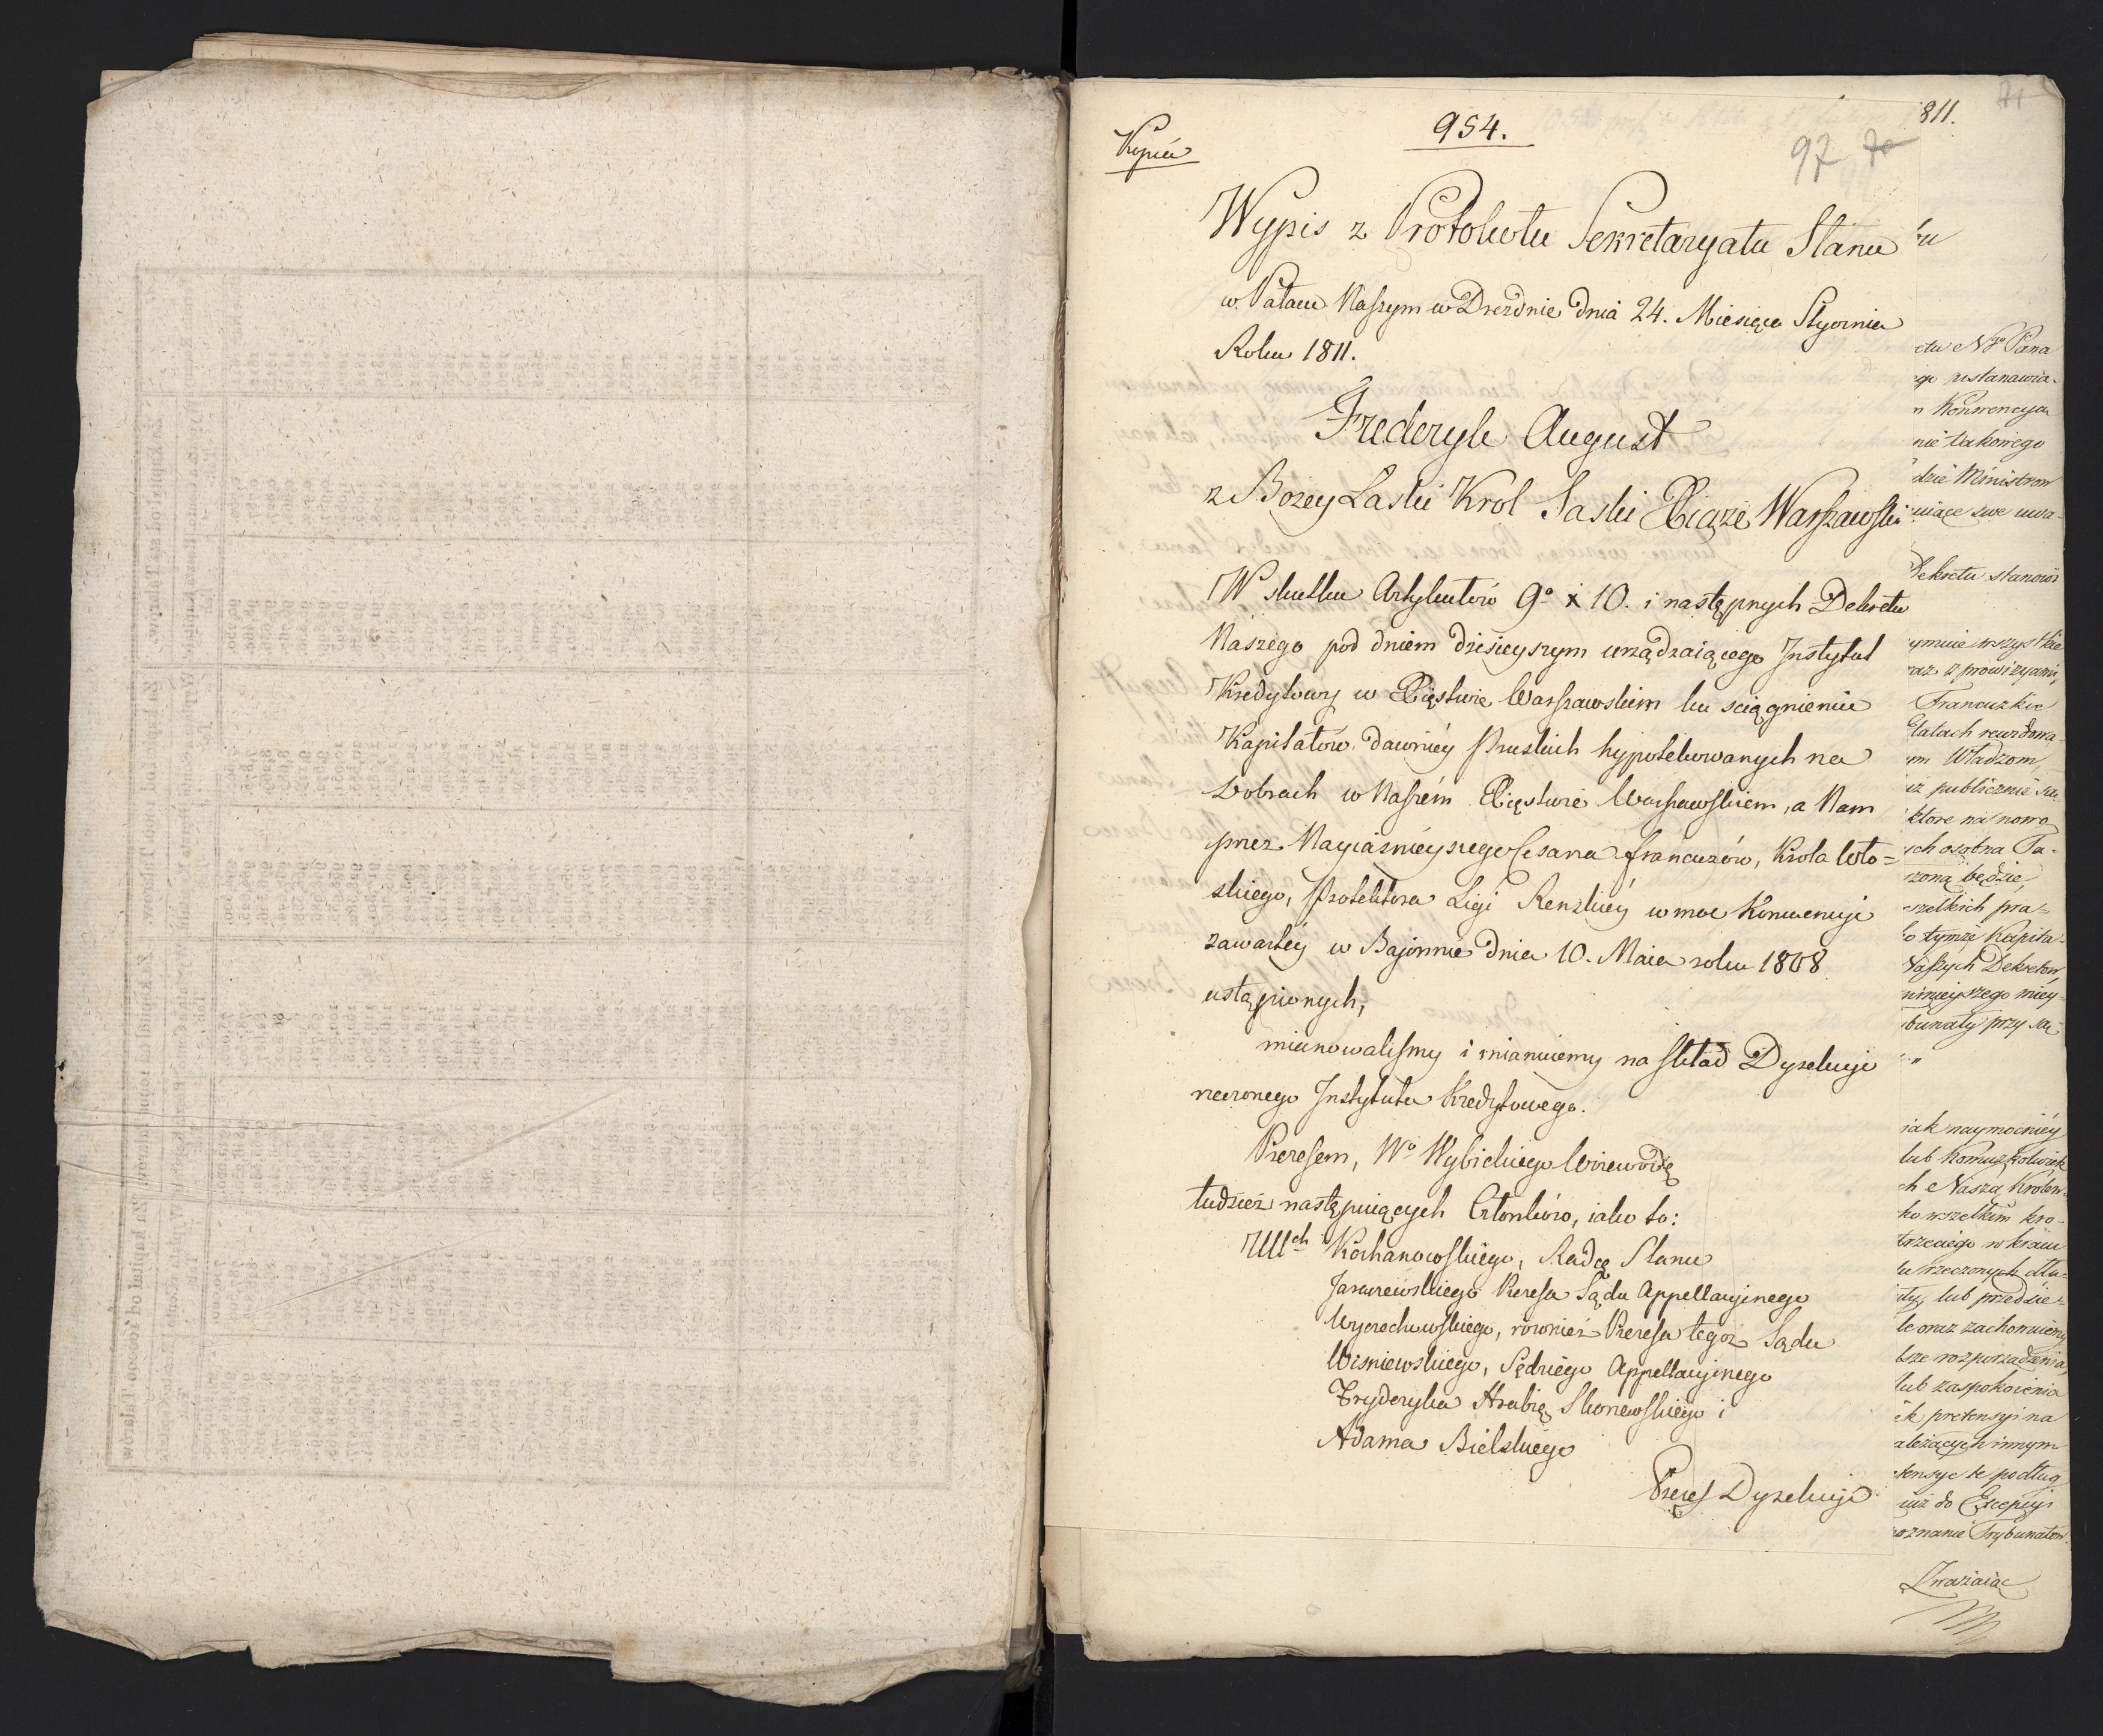 954.
Kopia
97
811.
71
Wypis z Protokołu Sekretaryatu Stanu
w Pałacu Naszym w Dreźdnie dnia 24. Miesiąca Stycznia
Roku 1811.
Fryderyk August
z Bozey Laski Krol Saski Xiąże Warszawski
W skutku Artykułów 9º x 10. i następnych Dekretu
Naszego pod dniem dzisieyszym urządzaiącego Instytut
Kredytowy w Xięstwie Warszawskiem ku sciągnieniu
Kapitałów dawniéy Pruskich hypotekowanych na
Dobrach w Naszém Xięstwie Warszawskiem, a Nam
przez Nayiaśnieyszego Cesarza francuzów, Krola Wło=
skiego, Protektora Ligi Renskiéy w moc Konwencyi
zawartéy w Bajonnie dnia 10. Maia roku 1808
ustąpionych,
mianowalismy i mianuiemy na skład Dyrekcyi
rzeczonego Instytutu Kredytowego.
Prezesem, Wº Wybickiego Woiewodę
tudzież następuiących Członków, iako to:
JUUch Kochanowskiego, Radcę Stanu
Jaraczewskiego Prezesa Sądu Appellacyinego
Wyczechowskiego, rownież Prezesa tegoż Sądu
Wisniewskiego, Sędziego Appellacyinego
Fryderyka Hrabię Skorzewskiego i
Adama Bielskiego
Prezes Dyrekcyi
ctu N. Pana
ego ustanawia-
n Konwencya
nie takowego
dzie Ministrow
uiące swe uwa-
Dekretu stanowi
ymuie wszystkie
raz z prowizyami,
Francuzkie
Etatach rewidowa-
ym Władzom,
iż publicznie
ktore na nowo
ych osobna Ta-
rzoną będzie,
szelkich pra=
o tymże Kapita-
Naszych Dekretow
ninieyszego miey-
bunały przy
iak naymocniéy
lub komużkolwiek
ch Naszą Krolew-
ko wszelkim kro-
trzcuego w kraiu
lu rzeczonych dłu-
ity, lub przedsie-
le oraz zachowuiemy
bsze rozporządzenia,
lub zaspokoienia
ek pretensyi na
ależących innym
tensye te podług
iuż do Excepcyi
oznanie Trybunałów.
Zważaiąc